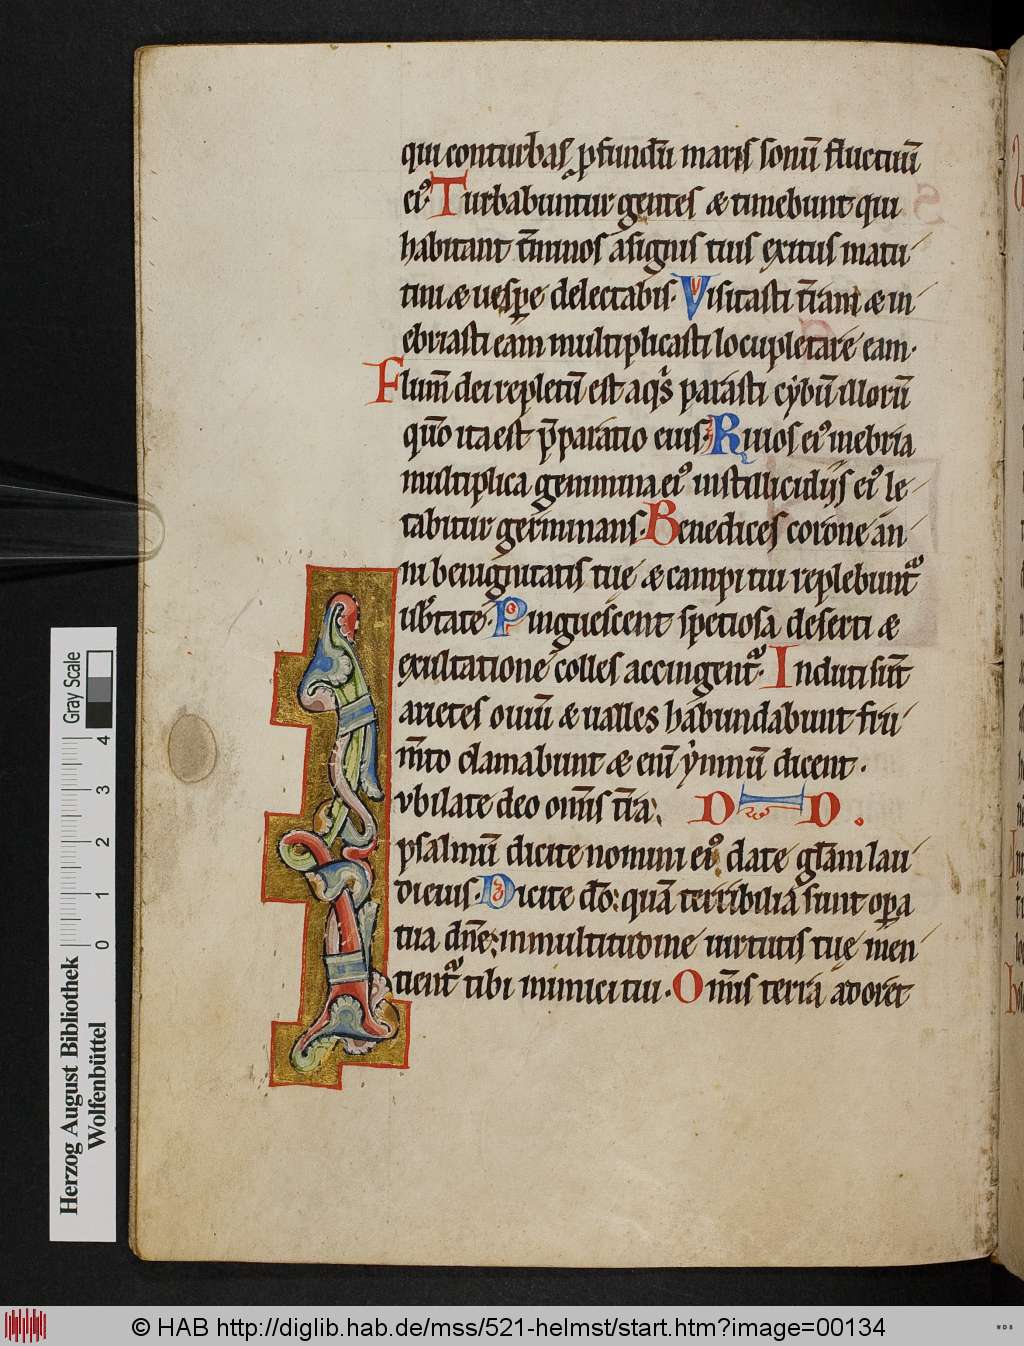 qui conturbas ꝓfundū maris sonū fluctuū
eiꝰ. Turbabuntur gentes & timebunt qui
habitant t̄minos a signis tuis exitus matu-
tini & uesꝑe delectabis. Visitasti t̄ram & in-
ebriasti eam multiplicasti locupletare eam.
Flum̄ dei repletū est aq̄s parasti cybū illorū
qm̄o ita est p̄paratio eius. Riuos eiꝰ inebria
multiplica genimina eiꝰ instillicidiis eiꝰ le-
tabitur germinans. Benedices corone an-
ni benignitatis tue & campi tui replebunt᷑
ub̄tate. Pinguescent speciosa deserti &
exultatione colles accingent᷑. Induti sūt
arietes ouiū & ualles habundabunt fru-
m̄to clamabunt & eni ymnū dicent.
Ivbilate deo om̄s t̄ra:
psalmū dicite nomini eiꝰ date gl̄am lau-
di eius. Dicite dō: quā terribilia sunt oꝑa
tua dn̄e: in multitudine uirtutis tuę men-
tient᷑ tibi inimici tui. Om̄is terra adoret
Gray Scale
4
3
2
1
0
Herzog August Bibliothek
Wolfenbüttel
© HAB http://diglib.hab.de/mss/521-helmst/start.htm?image=00134